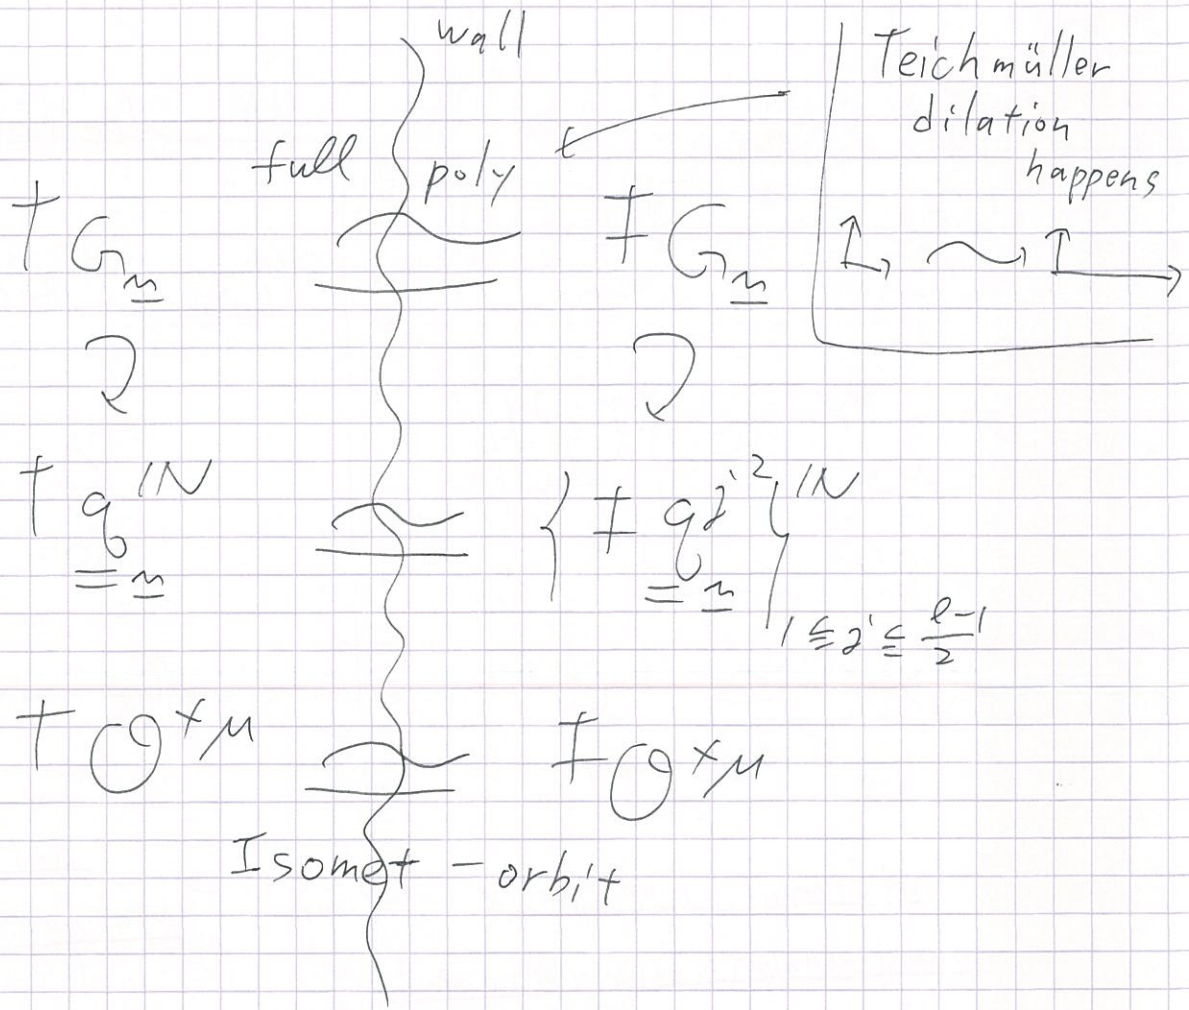 wall
Teichmüller
dilation
happens
full poly
† G_v ≅ ‡ G_v
† q_v^ℕ ≅ { ‡ q_v^{j²} }^ℕ_{1 ≦ j ≦ (l-1)/2}
† O^{×μ} ≅ ‡ O^{×μ}
Isomet - orbit